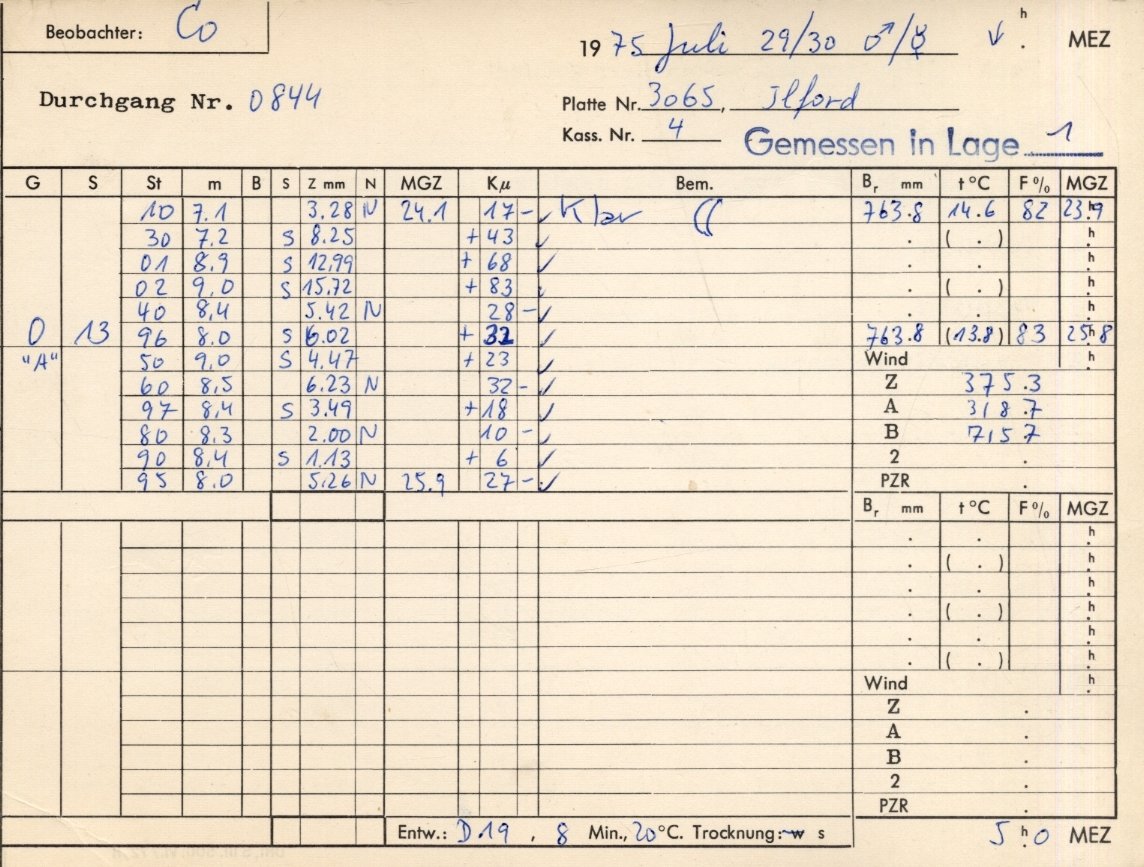 Beobachter: Co
1975 Juli 29/30 ♂/☿ h . MEZ
Durchgang Nr. 0844
Platte Nr. 3065, Ilford
Kass. Nr. 4 Gemessen in Lage 1
G S St m B S Z mm N MGZ Kμ Bem. Br mm t °C F % MGZ
10 7.1 3.28 N 24.1 17 - ✓ Klar ☾ 763.8 14.6 82 23.9 h
30 7.2 S 8.25 + 43 ✓ . ( . ) h
01 8.9 S 12.99 + 68 ✓ . . h
02 9.0 S 15.72 + 83 . ( . ) h
40 8.4 5.42 N 28 - ✓ . . h
0 13 96 8.0 S 6.02 + 32 ✓ 763.8 (13.8) 83 25.8 h
"A" 50 9.0 S 4.47 + 23 ✓ Wind h
60 8.5 6.23 N 32 - ✓ Z 375.3
97 8.4 S 3.49 + 18 ✓ A 318.7
80 8.3 2.00 N 10 - ✓ B 715 7
90 8.4 S 1.13 + 6 ✓ 2 .
95 8.0 5.26 N 25.9 27 - ✓ PZR .
Br mm t °C F % MGZ
. . h
. ( . ) h
. . h
. ( . ) h
. . h
. ( . ) h
Wind h
Z .
A .
B .
2 .
PZR .
Entw.: D19, 8 Min., 20 °C. Trocknung: w s 5 h 0 MEZ